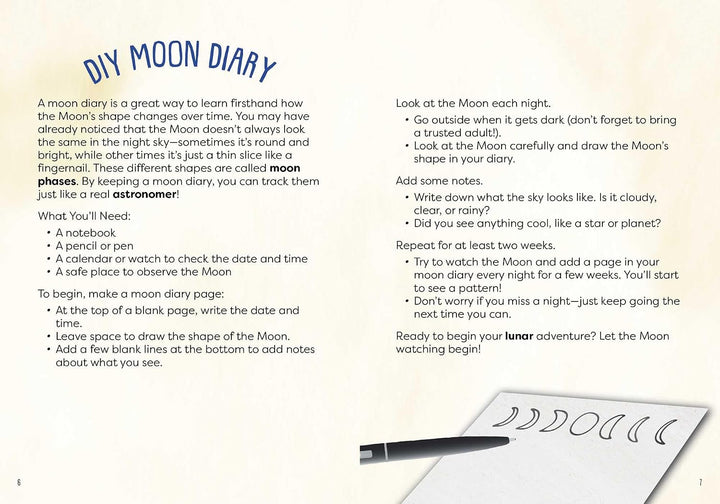 DIY MOON DIARY
A moon diary is a great way to learn firsthand how
the Moon's shape changes over time. You may have
already noticed that the Moon doesn't always look
the same in the night sky—sometimes it's round and
bright, while other times it's just a thin slice like a
fingernail. These different shapes are called moon
phases. By keeping a moon diary, you can track them
just like a real astronomer!
What You'll Need:
• A notebook
• A pencil or pen
• A calendar or watch to check the date and time
• A safe place to observe the Moon
To begin, make a moon diary page:
• At the top of a blank page, write the date and
time.
• Leave space to draw the shape of the Moon.
• Add a few blank lines at the bottom to add notes
about what you see.
6
Look at the Moon each night.
• Go outside when it gets dark (don't forget to bring
a trusted adult!).
• Look at the Moon carefully and draw the Moon's
shape in your diary.
Add some notes.
• Write down what the sky looks like. Is it cloudy,
clear, or rainy?
• Did you see anything cool, like a star or planet?
Repeat for at least two weeks.
• Try to watch the Moon and add a page in your
moon diary every night for a few weeks. You'll start
to see a pattern!
• Don't worry if you miss a night—just keep going the
next time you can.
Ready to begin your lunar adventure? Let the Moon
watching begin!
7